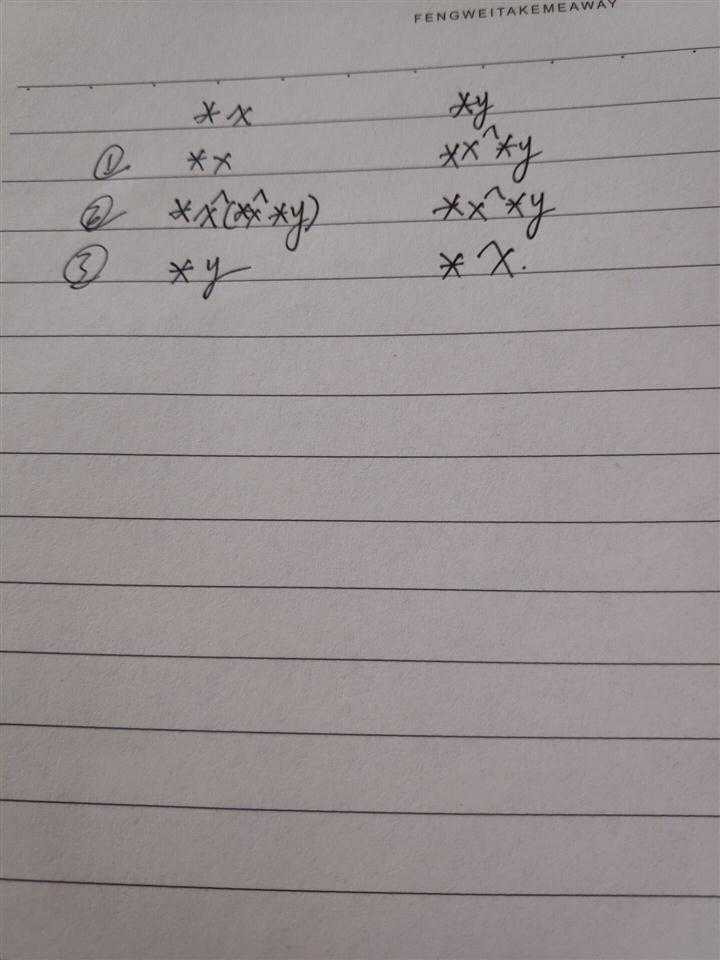 FENGWEITAKEMEAWAY
*x *y
① *x *x^*y
② *x^(*x^*y) *x^*y
③ *y *x.